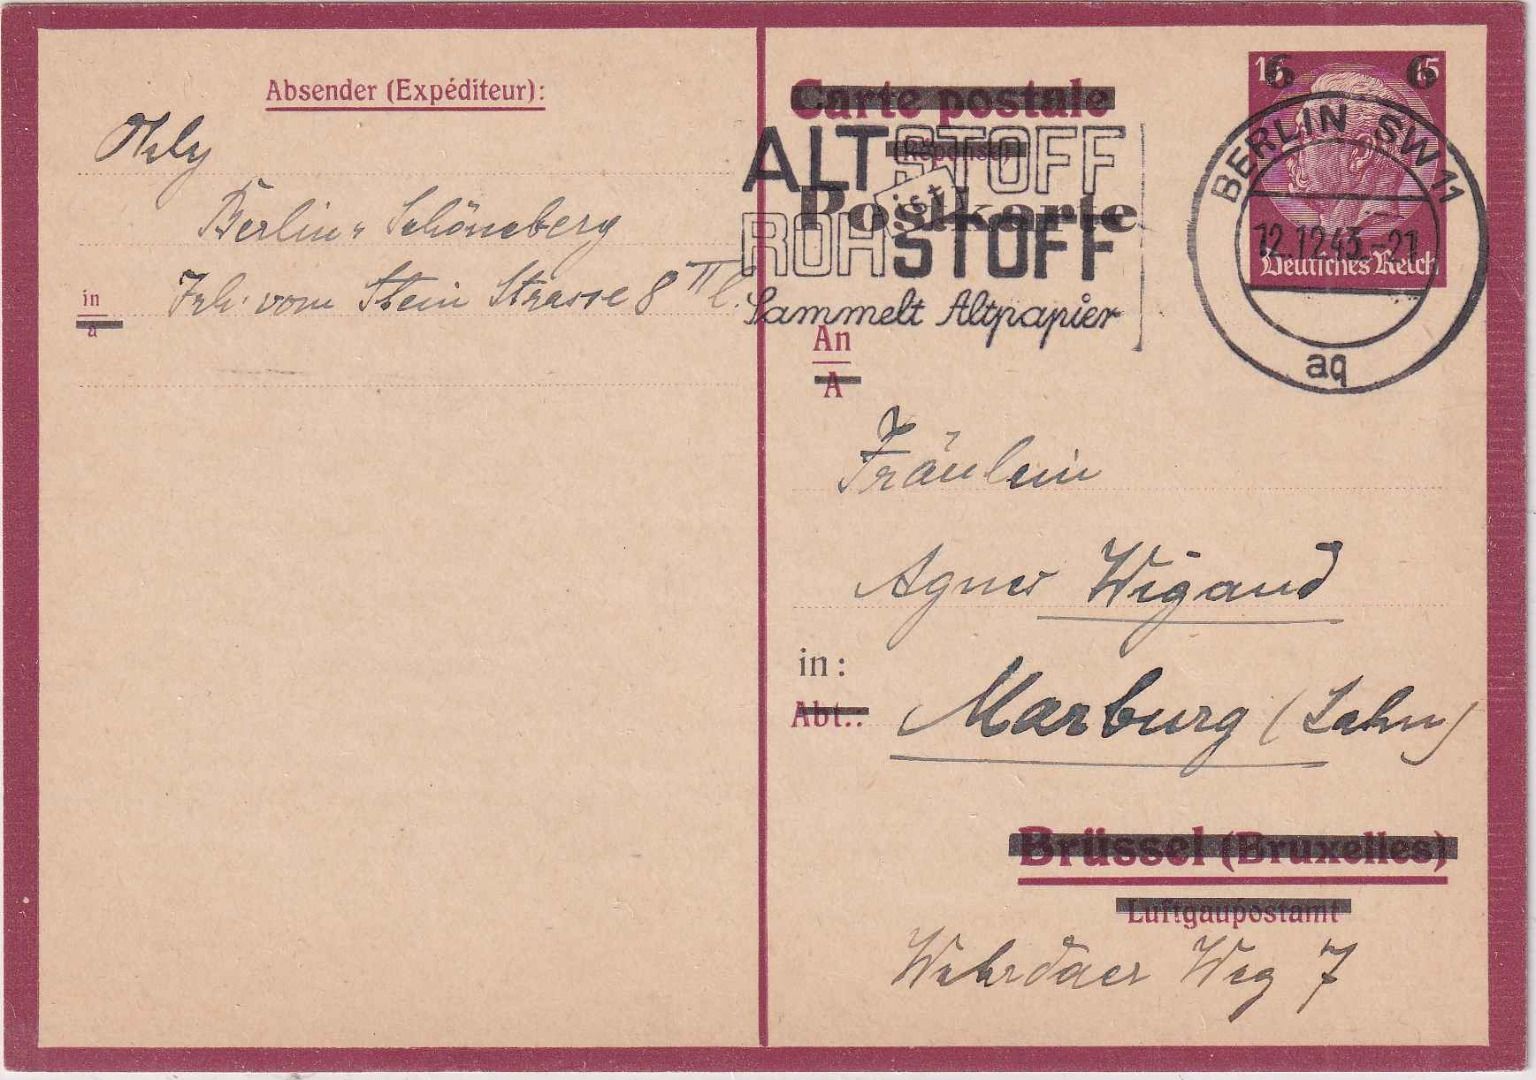 Absender (Expéditeur):
Berlin-Schöneberg
in
a
Frh. vom Stein Strasse 8 II l.
Carte postale
(Réponse)
Postkarte
ALTSTOFF
ist
ROHSTOFF
Sammelt Altpapier
15 15
6 6
Deutsches Reich
BERLIN SW 11
12.12.43.-21
aq
An
A
Fräulein
Agnes Wigand
in:
Abt.:
Marburg (Lahn)
Brüssel (Bruxelles)
Luftgaupostamt
Wehrdaer Weg 7